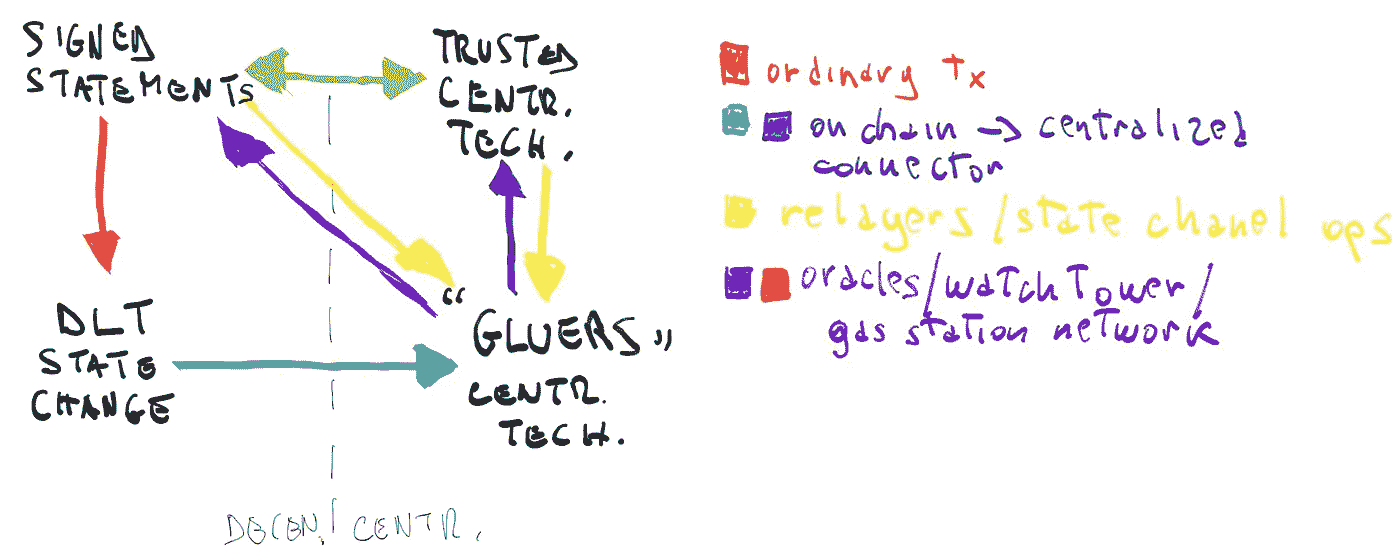 SIGNED
STATEMENTS
TRUSTED
CENTR.
TECH.
DLT
STATE
CHANGE
“GLUERS”
CENTR.
TECH.
DECEN./CENTR.
ordinary tx
on chain → centralized
connector
relayers/state chanel ops
oracles/watch Tower/
gas station network